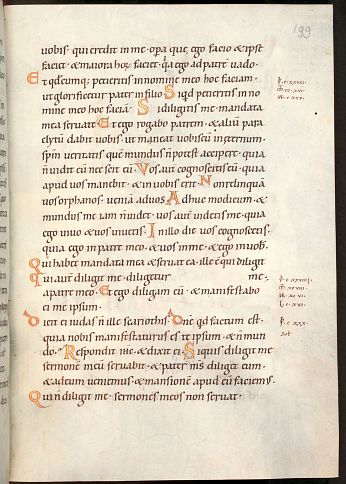 199
uobis. qui credit in me. opa que ego facio & ipse
faciet. & maiora hoꝝ faciet. qa ego ad patrē uado.
Et qđcumq; petieritis in nomine meo hoc faciam.
ut glorificetur pater in filio. Siqđ petieritis in no
mine meo hoc faciā. Si diligitis me. mandata
mea seruate. Et ego rogabo patrem. & aliū para
clytū dabit uobis. ut maneat uobiscū in eternum.
spm ueritatis quē mundus n̄ potest accipere. quia
n̄ uidit eū nec scit eū. Vos aut cognoscetis eū. quia
apud uos manebit. & in uobis erit. Non relinquā
uos orphanos. ueniā ad uos. Adhuc modicum. &
mundus me iam n̄ uidet. uos aut uidetis me. quia
ego uiuo & uos uiuetis. In illo die uos cognoscetis.
quia ego in patre meo. & uos in me. & ego in uob.
Qui habet mandata mea & seruat ea. ille ē qui diligit
Qui aut diligit me. diligetur me.
a patre meo. Et ego diligam eū. & manifestabo
ei me ipsum.
Dicit ei iudas n̄ ille scariothis. Dne qđ factum est.
quia nobis manifestaturus es te ipsum. & n̄ mun
do. Respondit ihc. & dixit ei. Siquis diligit me
sermonē meū seruabit. & pater ms diligit eum.
& ad eum ueniemus. & mansionē apud eū faciemus.
Qui n̄ diligit me. sermones meos non seruat.